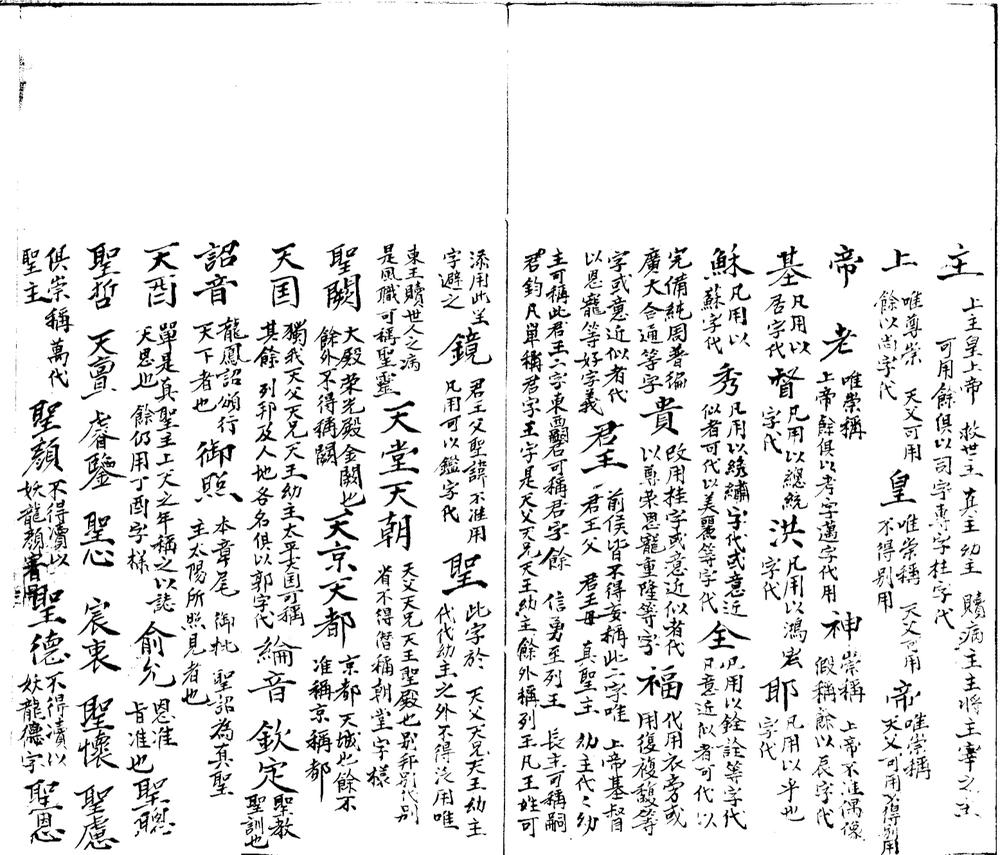 主 上主皇上帝 救世主 真主 幼主 贖病主 主將主宰之主可用餘俱以司字專字柱字代
上 唯尊崇 天父可用餘以尚字代 皇 唯崇稱 天父可用不得別用 帝 唯崇稱天父可用不得別用
帝 老 唯崇稱上帝餘俱以考字邁字代用 神 崇稱 上帝不准偶像假稱餘以辰字代
基 凡用以字代 督 凡用以總統字代 洪 凡用以鴻宏字代 耶 凡用以乎也字代
穌 凡用以蘇字代 秀 凡用以綉繡字代或意近似者可代以美麗等字代 全 凡用以銓詮等字代凡意近似者可代以
完備純周普徧廣大合通等字 貴 改用桂字或意近似者代以尊榮恩寵重隆等字 福 代用衣旁或用復複馥等
字或意近似者代以恩寵等好字義 君王 前侯皆不得妄稱此二字唯 上帝基督君王父 君王母 真聖主 幼主代々幼
主可稱此君王二字東西嗣君可稱君字餘 信勇至列王 長主可稱嗣
君鈞凡單稱君字王字是天父天兄天王幼主餘外稱列王凡王姓可
添用此坐字避之 鏡 君王父聖諱不准用凡用可以鑑字代 聖 此字於 天父天兄天王幼主代代幼主之外不得泛用唯
東王贖世人之病是風職可稱聖靈 天堂天朝 天父天兄天王聖殿也別邦別代別省不得僭稱朝堂字樣
聖闕 大殿榮光殿金闕也餘外不得稱闕 天京天都 京都天城也餘不准稱京稱都
天囯 獨我天父天兄天王幼主太平天囯可稱其餘列邦及人地各名俱以郭字代 綸音 欽定 聖教聖訓也
詔音 龍鳳詔頒行天下者也 御照 本章尾 御批 聖詔為真聖主太陽所照見者也
天酉 單是真聖主上天之年稱之以誌天恩也 餘仍用丁酉字樣 俞允 恩准旨准也 聖聰
聖哲 天亶 睿鑒 聖心 宸衷 聖懷 聖慮
俱崇稱萬代聖主 聖顏 不得瀆以妖龍顏字 聖德 不得瀆以妖龍德字 聖恩